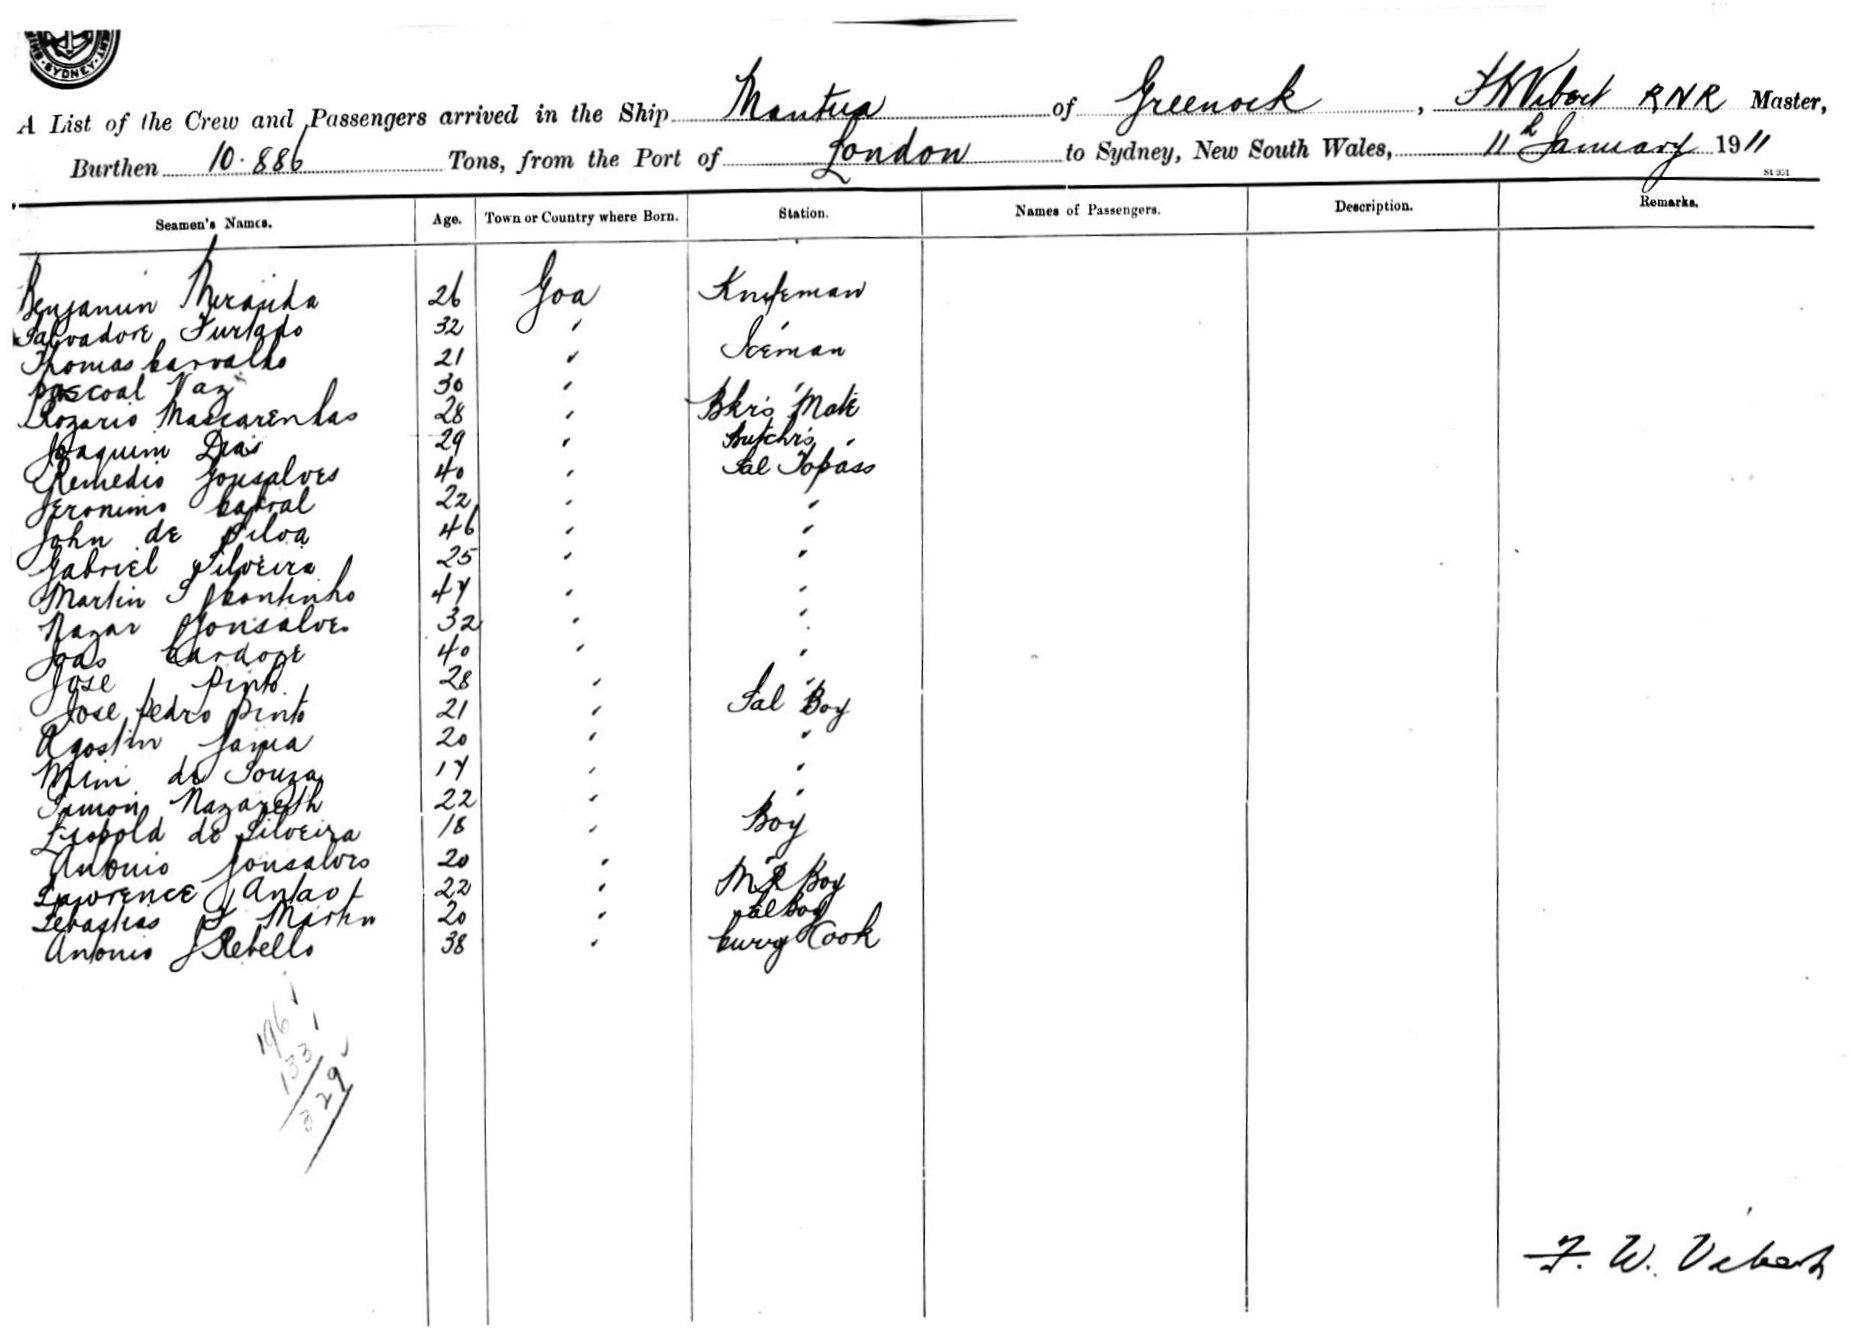 SYDNEY
A List of the Crew and Passengers arrived in the Ship Mantua of Greenock, F W Vibert RNR Master,
Burthen 10.886 Tons, from the Port of London to Sydney, New South Wales, 11th January 1911
St 951
Seamen's Names. Age. Town or Country where Born. Station. Names of Passengers. Description. Remarks.
Benjamin Miranda 26 Goa Knifeman
Salvadore Furtado 32 " "
Thomas Carvalho 21 " Iceman
Pascoal Vaz 30 " "
Rozario Mascarenhas 28 " Bkr's Mate
Joaquim Dias 29 " Butchr's "
Remedio Gonsalves 40 " Sal Topass
Jeronimo Cabral 22 " "
John de Silva 46 " "
Gabriel Silveira 25 " "
Martin J Coutinho 47 " "
Nazar Gonsalves 32 " "
Joao Cardoze 40 " "
Jose Pinto 28 " "
Jose Pedro Pinto 21 " Sal Boy
Agostin Gama 20 " "
Mini de Souza 17 " "
Simon Nazareth 22 " "
Leopold de Silveira 18 " Boy
Antonio Gonsalves 20 " "
Lawrence Antao 22 " M R Boy
Sebastiao F Martin 20 " Sal Boy
Antonio J Rebello 38 " Curry Cook
196
133
329
F. W. Vibert